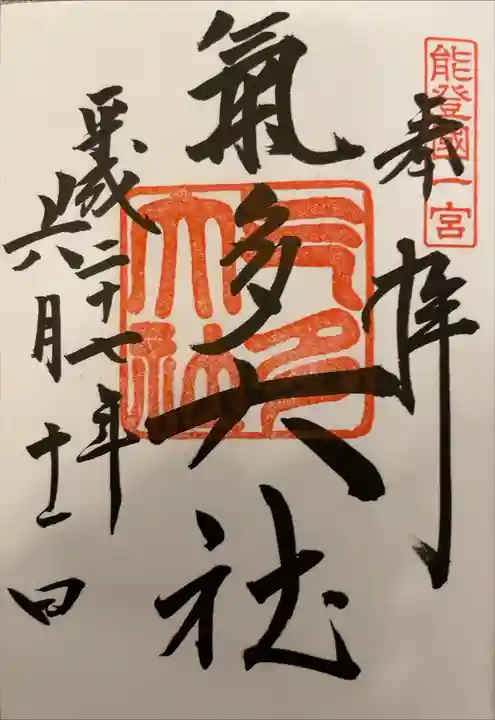 能登國一宮
奉拝
氣多大社
气多大社
平成二十七年
六月十一日